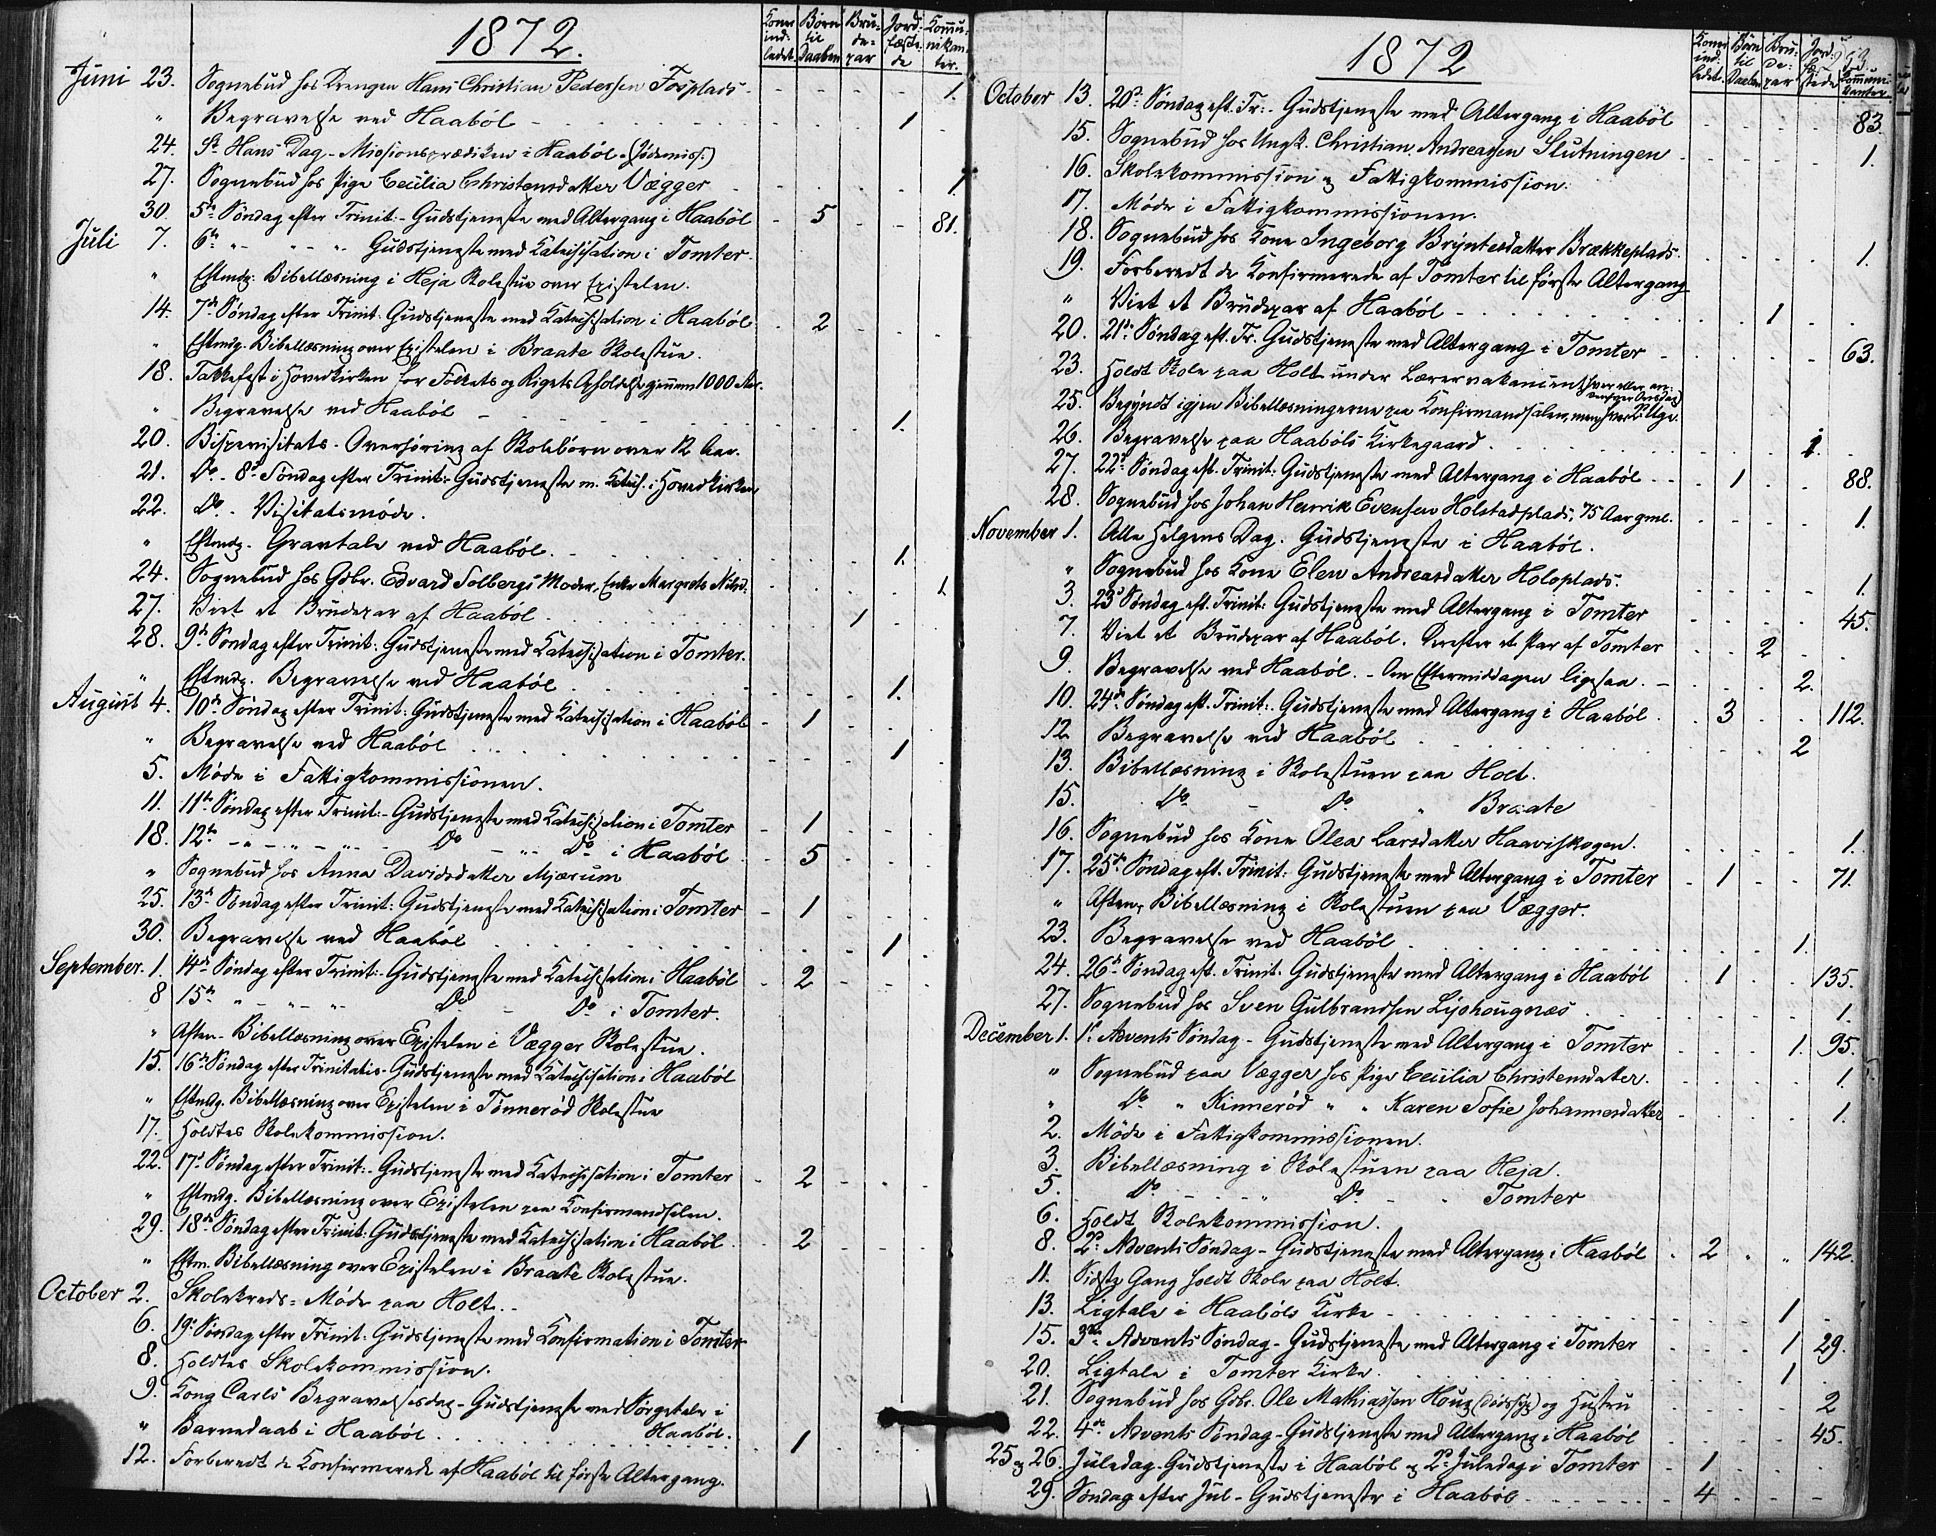 1872.
Koner indledet. Børn til Daaben Brudepar Jordfæstede Kommunikanter.
Juni 23. Sognebud hos Drengen Hans Christian Pedersen Fosplads - - - - 1.
" Begravelse ved Haabøl - - - 1 -
24. St. Hans Dag - Missionsprædiken i Haabøl - (Jødemiss.)
27. Sognebud hos Pige Cecilia Christensdatter Vægger - - - - 1.
30. 5te Søndag efter Trinit. - Gudstjeneste med Altergang i Haabøl - 5 - - 81.
Juli 7. 6te " - " - " - Gudstjeneste med Katechisation i Tomter.
" Eftmdg. Bibellæsning i Heja Skolestue over Epistelen.
14. 7de Søndag efter Trinit. Gudstjeneste med Katechisation i Haabøl - 2 - - -
" Eftmdg. Bibellæsning over Epistelen i Braate Skolestue.
18. Takkefest i Hovedkirken for Folkets og Rigets Opholdelse gjennem 1000 Aar.
" Begravelse ved Haabøl - - - 1. -
20. Bispevisitats - Overhøring af Skolebørn over 12 Aar.
21. Do. - 8de Søndag efter Trinit. - Gudstjeneste m. Katech. i Hovedkirken
22. Do. - Visitatsmøde.
" Eftmdg. - Gravtale ved Haabøl. - - - 1. -
24. Sognebud hos Gdbr. Edvard Solbergs Moder, Enke Margrete Nilsd. - - - - 1
27. Viet et Brudepar af Haabøl - - 1 - -
28. 9de Søndag efter Trinit. Gudstjeneste med Katechisation i Tomter.
" Eftmdg. Begravelse ved Haabøl - - - 1. -
August 4. 10de Søndag efter Trinit. Gudstjeneste med Katechisation i Haabøl - 1 - - -
" Begravelse ved Haabøl - - - 1 -
5. Møde i Fattigkommissionen.
11. 11te Søndag efter Trinit. - Gudstjeneste med Katechisation i Tomter - 1 - - -
18. 12te - " - " - " - Do - " - Do i Haabøl - 5 - - -
" Sognebud hos Anna Davidsdatter Mjærum
25. 13de Søndag efter Trinit. Gudstjeneste med Katechisation i Tomter - 1 - - -
30. Begravelse ved Haabøl - - - 1. -
September. 1. 14de Søndag efter Trinit. - Gudstjeneste med Katechisation i Haabøl - 2 - - -
8 15de " - " - " Do - Do i Tomter.
" Aften - Bibellæsning over Epistelen i Vægger Skolestue.
15. 16de Søndag efter Trinitatis - Gudstjeneste med Katechisation i Haabøl
" Eftmdg. Bibellæsning over Epistelen i Tønnerød Skolestue
17. Holdtes Skolekommission.
22. 17de Søndag efter Trinit. - Gudstjeneste med Katechisation i Tomter - 2 - - -
" Eftmdg. Bibellæsning over Epistelen paa Konfirmandsalen.
29. 18de Søndag efter Trinit. Gudstjeneste med Katechisation i Haabøl - 2 - - -
" Eftm. Bibellæsning over Epistelen i Braate Skolestue.
October 2. Skolekreds-Møde paa Holt. -
6. 19de Søndag efter Trinit. Gudstjeneste med Konfirmation i Tomter
8. Holdtes Skolekommission.
9. Kong Carls Begravelsesdag - Gudstjeneste med Sørgetale i
Haabøl.
" Barnedaab i Haabøl - 1 - - -
12. Forberedt de Konfirmerede af Haabøl til første Altergang.
1872
53.
Koner indledet. Børn til Daaben Brudepar Jordfæstede Kommunikanter.
October 13. 20de Søndag eft. Tr. - Gudstjeneste med Altergang i Haabøl - - - - 83.
15. Sognebud hos Ungk. Christian Andreassen Slutningen - - - - 1.
16. Skolekommission og Fattigkommission.
17. Møde i Fattigkommissionen.
18. Sognebud hos Kone Ingeborg Bryntesdatter Brækkeplads - - - - 1.
19. Forberedt de Konfirmerede af Tomter til første Altergang
" Viet et Brudepar af Haabøl - - 1 - -
20. 21de Søndag eft. Tr. Gudstjeneste med Altergang i Tomter - - - - 63.
23. Holdt Skole paa Holt under Lærervakancen
25. Begyndt igjen Bibellæsningerne paa Konfirmandsalen, men hver 2. Uge.
26. Begravelse paa Haabøls Kirkegaard - - - 1. -
27. 22de Søndag eft. Trinit. Gudstjeneste med Altergang i Haabøl - 1 - - 88.
28. Sognebud hos Johan Henrik Evensen Holstadplads, 75 Aar gml. - - - - 1.
November 1. Alle Helgens Dag. Gudstjeneste i Haabøl.
" Sognebud hos Kone Elen Andreasdatter Holoplads. - - - - 1.
3. 23de Søndag eft. Trinit. Gudstjeneste med Altergang i Tomter - - - - 45.
7. Viet et Brudepar af Haabøl. Derefter et Par af Tomter - - 2 - -
9. Begravelse ved Haabøl. - Om Eftermiddagen ligesaa. - - - 2. -
10. 24de Søndag eft. Trinit. - Gudstjeneste med Altergang i Haabøl - 3 - - 112.
12. Begravelse ved Haabøl - - - 2 -
13. Bibellæsning i Skolestuen paa Holt.
15. Do - Do " Braate
16. Sognebud hos Kone Olea Larsdatter Haaviskogen. - - - - 1.
17. 25de Søndag eft. Trinit. Gudstjeneste med Altergang i Tomter - 1 - - 71.
" Aften, Bibellæsning i Skolestuen paa Vægger.
23. Begravelse ved Haabøl - - - 1. -
24. 26de Søndag eft. Trinit. Gudstjeneste med Altergang i Haabøl - 1 - - 135.
27. Sognebud hos Sven Gulbrandsen Lyshougnæs - - - - 1.
December 1. 1ste Advents Søndag - Gudstjeneste med Altergang i Tomter - - - 1. 95.
" Sognebud paa Vægger hos Pige Cecilia Christensdatter. - - - - 1.
" Do. " Kinnerød " " Karen Sofie Johannesdatter - - - - 1.
2. Møde i Fattigkommissionen.
3. Bibellæsning i Skolestuen paa Heja.
5. Do. - " Do - " Tomter
6. Holdt Skolekommission.
8. 2den Advents Søndag - Gudstjeneste med Altergang i Haabøl - 2 - " 142.
11. Sidste Gang holdt Skole paa Holt.
13. Ligtale i Haabøls Kirke - - - 1 -
15. 3die Advents Søndag - Gudstjeneste med Altergang i Tomter - - - 1 29.
20. Ligtale i Tomter Kirke - - - 1
21. Sognebud hos Gdbr. Ole Mathiassen Houg (dødssyg) og Hustru - - - - 2
22. 4de Advents Søndag - Gudstjeneste med Altergang i Haabøl - - - - 45.
25 og 26. Juledag - Gudstjeneste i Haabøl og 2den Juledag i Tomter - 1 - - -
29. Søndag efter Jul - Gudstjeneste i Haabøl - 4 - - -